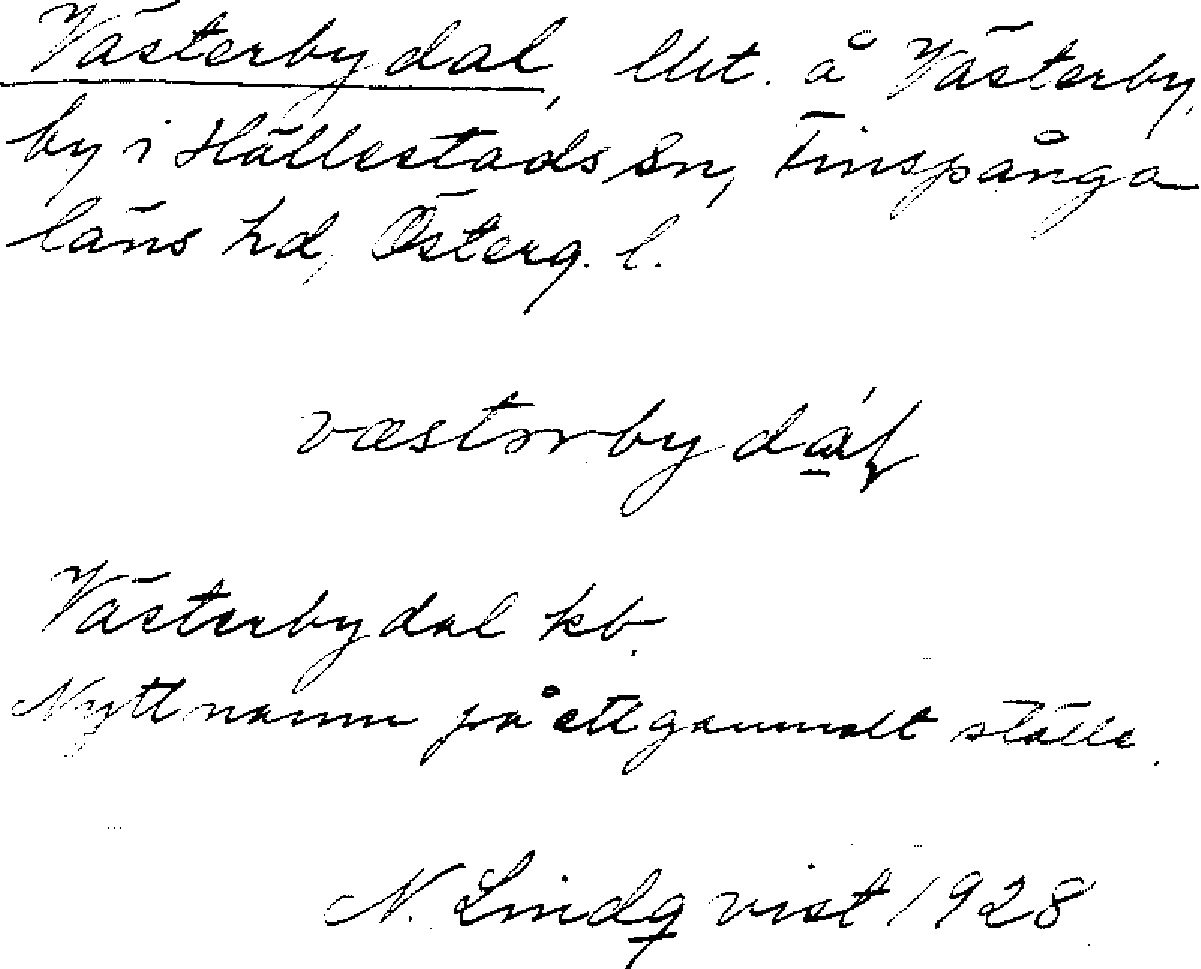 Västerbydal, lht. å Västerby,
by i Hällestads sn, Finspånga
läns hd, Österg. l.
Västerbydal kb.
Nytt namn på ett gammalt ställe.
N. Lindqvist 1928